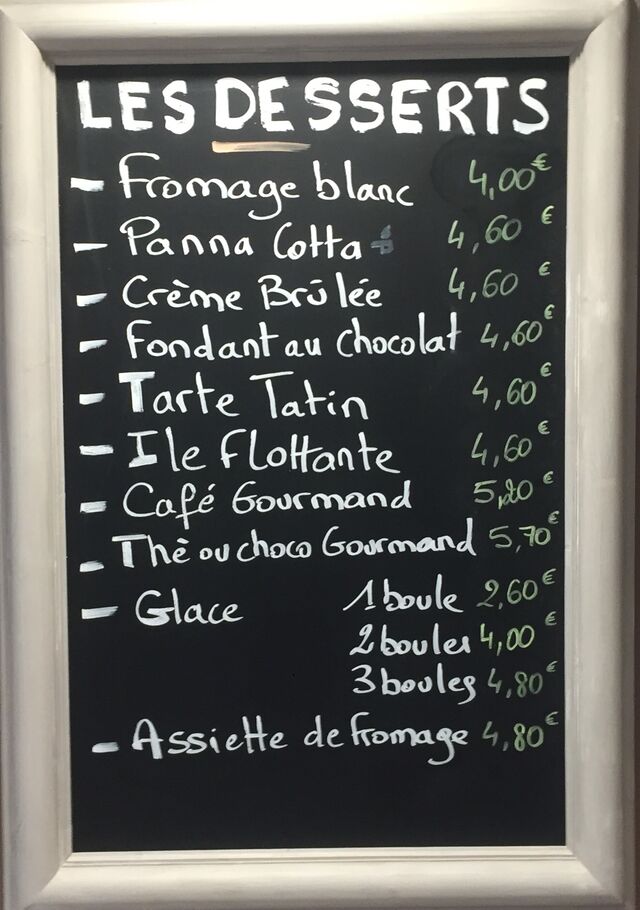 LES DESSERTS
- Fromage blanc 4,00€
- Panna Cotta 4,60 €
- Crème Brûlée 4,60 €
- Fondant au chocolat 4,60€
- Tarte Tatin 4,60€
- Ile flottante 4,60 €
- Café Gourmand 5,20€
- Thè ou choco Gourmand 5,70€
- Glace 1 boule 2,60€
2 boules 4,00€
3 boules 4,80€
- Assiette de fromage 4,80€